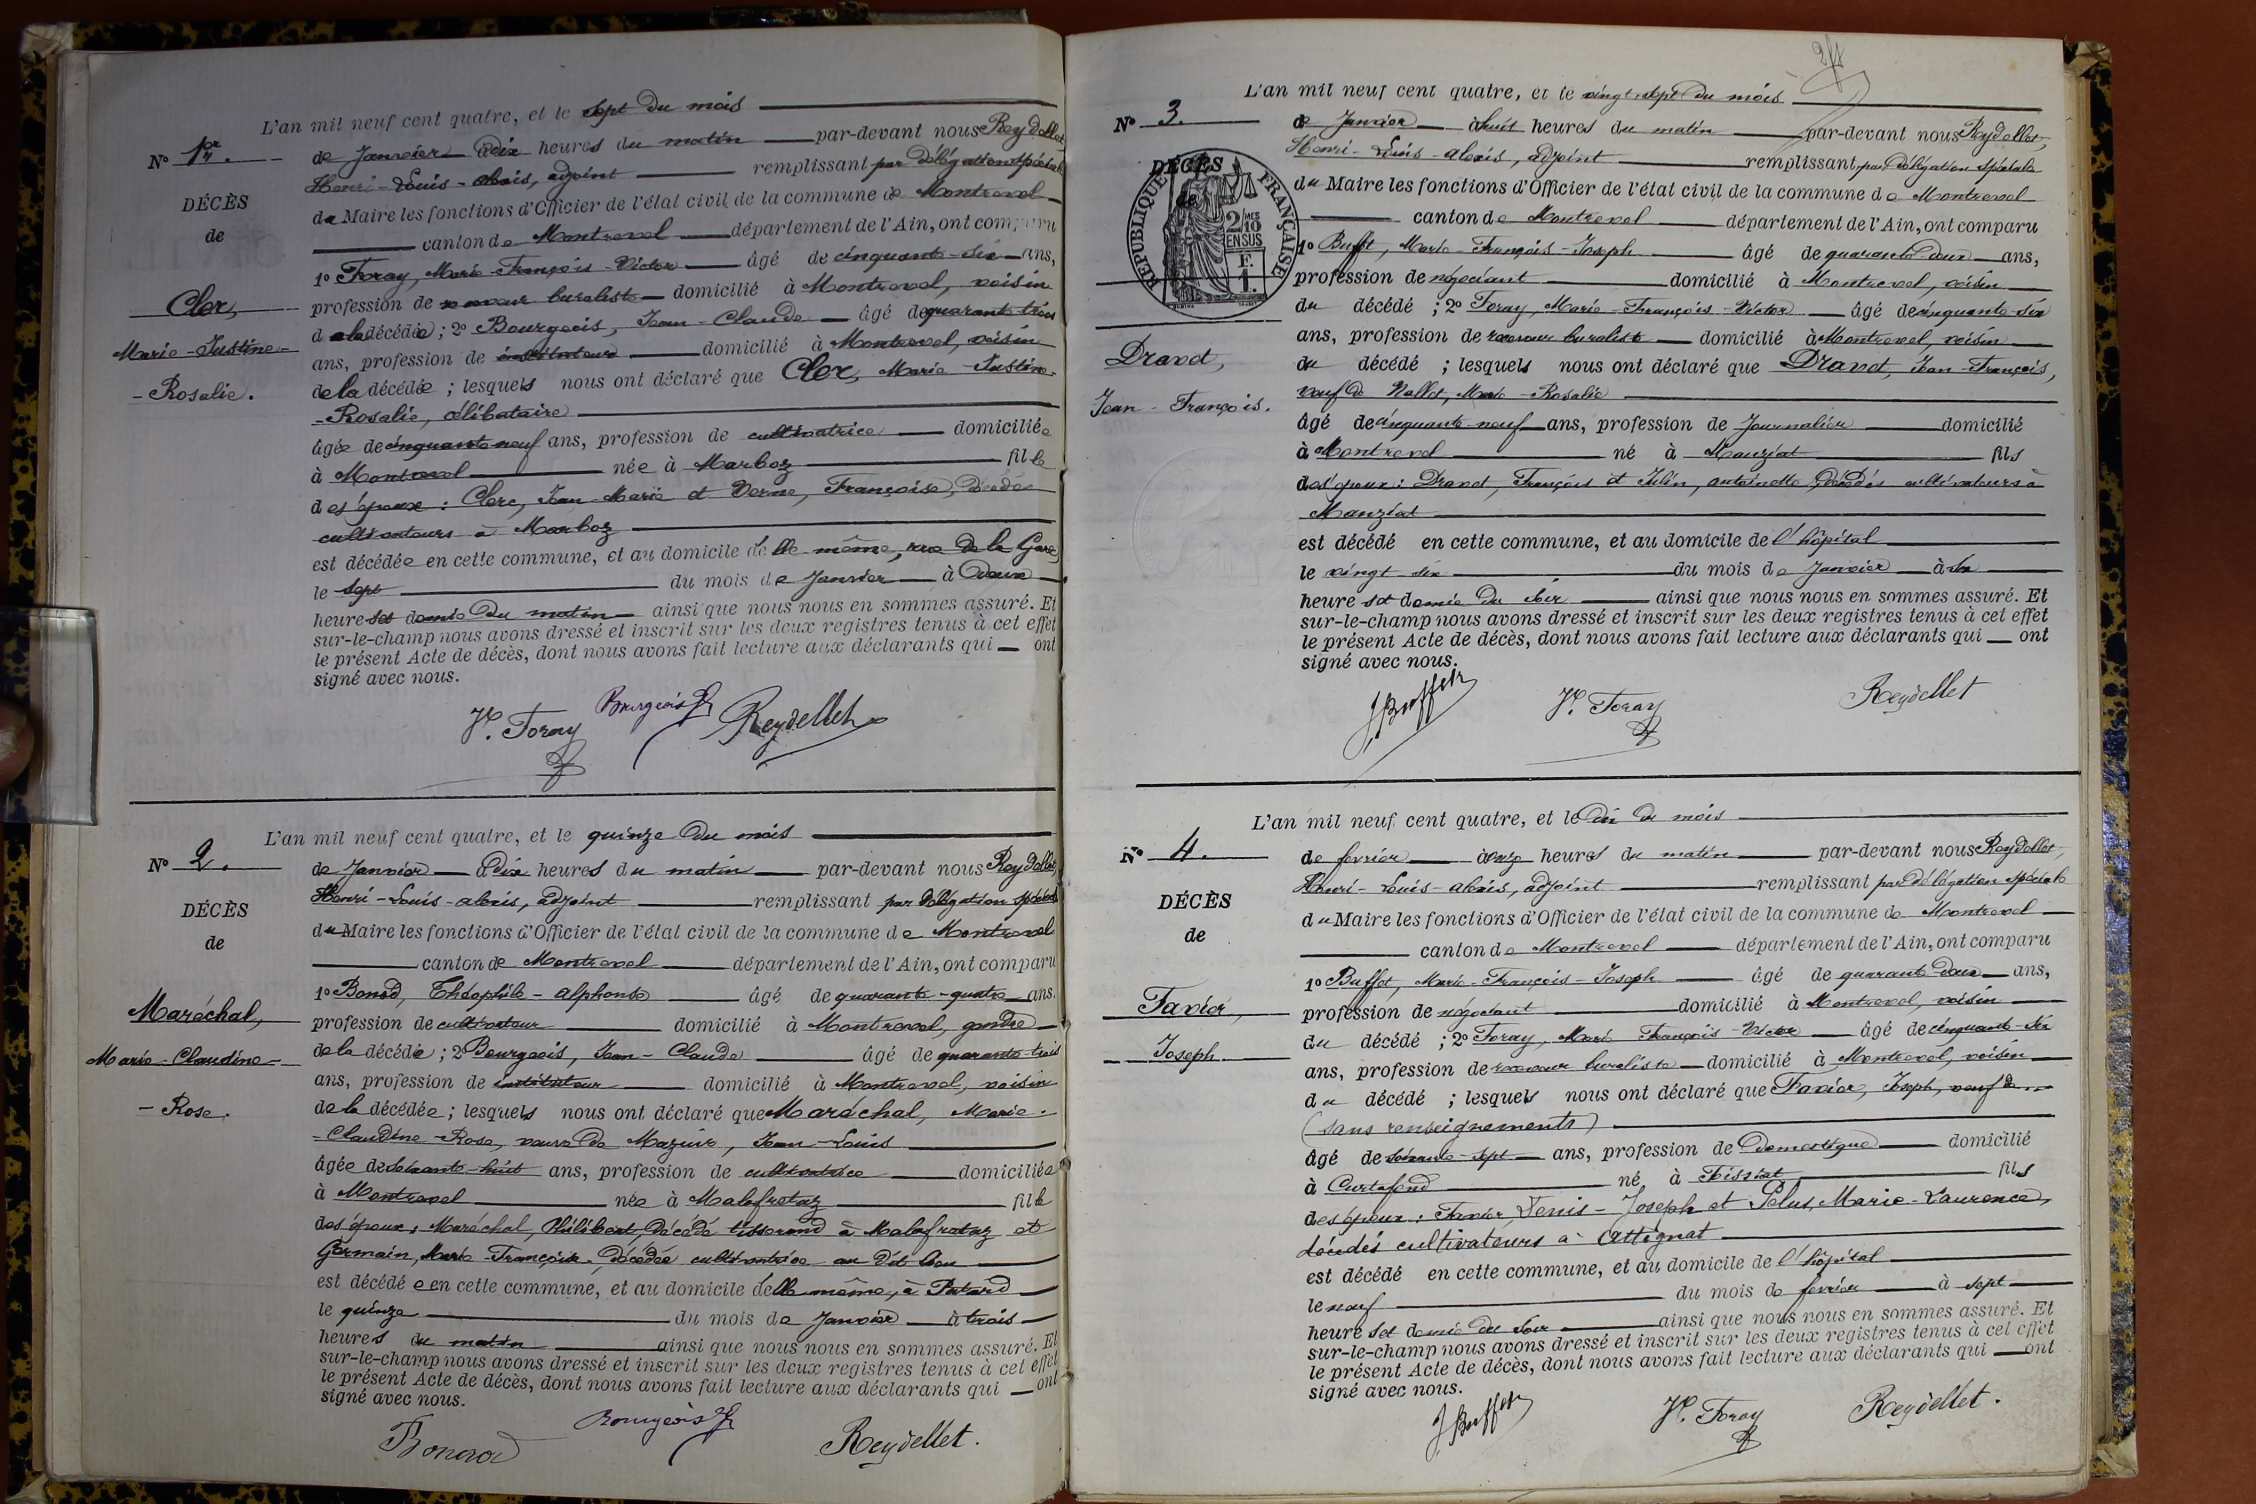 L'an mil neuf cent quatre, et le sept du mois
No 1er.
de Janvier à dix heures du matin par-devant nous Reydellet
Henri-Louis-Alexis, adjoint remplissant par délégation spéciale
DÉCÈS
du Maire les fonctions d'Officier de l'état civil de la commune de Montrevel
de
canton de Montrevel département de l'Ain, ont comparu
1o Foray, Marie-François-Victor âgé de cinquante-six ans,
Clerc,
profession de receveur buraliste domicilié à Montrevel, voisin
de la décédée ; 2o Bourgeois, Jean-Claude âgé de quarante trois
Marie-Justine-
ans, profession de instituteur domicilié à Montrevel, voisin
de la décédée ; lesquels nous ont déclaré que Clerc, Marie-Justine-
-Rosalie.
-Rosalie, célibataire
âgée de cinquante-neuf ans, profession de cultivatrice domiciliée
à Montrevel née à Marboz fille
des époux : Clerc, Jean-Marie et Verne, Françoise, décédés
cultivateurs à Marboz
est décédée en cette commune, et au domicile d'elle même, rue de la Gare
le sept du mois de Janvier à deux
heures et demie du matin ainsi que nous nous en sommes assuré. Et
sur-le-champ nous avons dressé et inscrit sur les deux registres tenus à cet effet
le présent Acte de décès, dont nous avons fait lecture aux déclarants qui ont
signé avec nous.
Vr. Foray Bourgeois Reydellet
L'an mil neuf cent quatre, et le quinze du mois
No 2.
de Janvier à dix heures du matin par-devant nous Reydellet,
Henri-Louis-Alexis, adjoint remplissant par délégation spéciale
DÉCÈS
du Maire les fonctions d'Officier de l'état civil de la commune de Montrevel
de
canton de Montrevel département de l'Ain, ont comparu
1o Bonod, Théophile-Alphonse âgé de quarante-quatre ans.
Maréchal,
profession de cultivateur domicilié à Montrevel, gendre
de la décédée ; 2o Bourgeois, Jean-Claude âgé de quarante-trois
Marie-Claudine-
ans, profession de instituteur domicilié à Montrevel, voisin
-Rose.
de la décédée ; lesquels nous ont déclaré que Maréchal, Marie-
-Claudine-Rose, veuve de Mazuir, Jean-Louis
âgée de soixante-huit ans, profession de cultivatrice domiciliée
à Montrevel née à Malafretaz fille
des époux : Maréchal, Philibert, décédé tisserand à Malafretaz et
Germain, Marie-Françoise, décédée cultivatrice au dit lieu
est décédée en cette commune, et au domicile d'elle même, à
le quinze du mois de Janvier à trois
heures du matin ainsi que nous nous en sommes assuré. Et
sur-le-champ nous avons dressé et inscrit sur les deux registres tenus à cet effet
le présent Acte de décès, dont nous avons fait lecture aux déclarants qui ont
signé avec nous.
Bonod Bourgeois Reydellet.
L'an mil neuf cent quatre, et le vingt sept du mois
No 3.
de Janvier à huit heures du matin par-devant nous Reydellet,
Henri-Louis-Alexis, adjoint remplissant par délégation spéciale
DÉCÈS
du Maire les fonctions d'Officier de l'état civil de la commune de Montrevel
de
RÉPUBLIQUE FRANÇAISE
2/10MES
EN SUS
F.
1.
canton de Montrevel département de l'Ain, ont comparu
1o Buffet, Marie-François-Joseph âgé de quarante deux ans,
profession de négociant domicilié à Montrevel, voisin
du décédé ; 2o Foray, Marie-François-Victor âgé de cinquante-six
ans, profession de receveur buraliste domicilié à Montrevel, voisin
Dravet,
du décédé ; lesquels nous ont déclaré que Dravet, Jean-François,
Jean-François.
veuf de Nallet, Marie-Rosalie
âgé de cinquante-neuf ans, profession de Journalier domicilié
à Montrevel né à Manziat fils
des époux : Dravet, François et antoinette, décédés cultivateurs à
Manziat
est décédé en cette commune, et au domicile de l'hôpital
le vingt six du mois de Janvier à six
heures et demie du soir ainsi que nous nous en sommes assuré. Et
sur-le-champ nous avons dressé et inscrit sur les deux registres tenus à cet effet
le présent Acte de décès, dont nous avons fait lecture aux déclarants qui ont
signé avec nous.
J Buffet Vr. Foray Reydellet
L'an mil neuf cent quatre, et le dix du mois
No 4.
de février à onze heures du matin par-devant nous Reydellet,
Henri-Louis-Alexis, adjoint remplissant par délégation spéciale
DÉCÈS
du Maire les fonctions d'Officier de l'état civil de la commune de Montrevel
de
canton de Montrevel département de l'Ain, ont comparu
1o Buffet, Marie-François-Joseph âgé de quarante-deux ans,
Favier,
profession de négociant domicilié à Montrevel, voisin
du décédé ; 2o Foray, Marie François-Victor âgé de cinquante-six
Joseph.
ans, profession de receveur buraliste domicilié à Montrevel, voisin
du décédé ; lesquels nous ont déclaré que Favier, Joseph, veuf de ...
(sans renseignements)
âgé de soixante-sept ans, profession de Domestique domicilié
à Curtafond né à Foissiat fils
des époux : Favier, Denis-Joseph et Pelus, Marie-Laurence,
décédés cultivateurs à Attignat
est décédé en cette commune, et au domicile de l'hôpital
le neuf du mois de février à sept
heures et demie du soir ainsi que nous nous en sommes assuré. Et
sur-le-champ nous avons dressé et inscrit sur les deux registres tenus à cet effet
le présent Acte de décès, dont nous avons fait lecture aux déclarants qui ont
signé avec nous.
J Buffet Vr. Foray Reydellet.